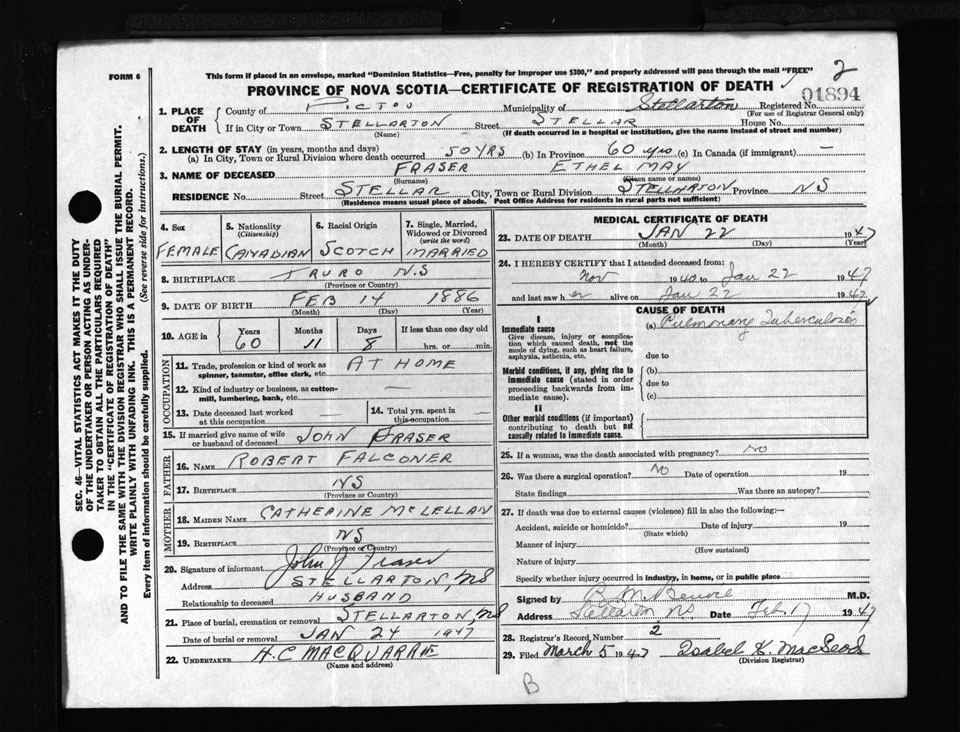 FORM 6
This form if placed in an envelope, marked "Dominion Statistics—Free, penalty for improper use $300," and properly addressed will pass through the mail "FREE"
2
PROVINCE OF NOVA SCOTIA—CERTIFICATE OF REGISTRATION OF DEATH
01894
1. PLACE OF DEATH
County of PICTOU Municipality of Stellarton Registered No.
(For use of Registrar General only)
If in City or Town STELLARTON Street STELLAR House No.
(Name) (If death occurred in a hospital or institution, give the name instead of street and number)
2. LENGTH OF STAY (in years, months and days)
(a) In City, Town or Rural Division where death occurred 50 YRS (b) In Province 60 yrs (c) In Canada (if immigrant) —
3. NAME OF DECEASED FRASER ETHEL MAY
(Surname) (Given name or names)
RESIDENCE No. Street STELLAR City, Town or Rural Division STELLARTON Province NS
(Residence means usual place of abode. Post Office Address for residents in rural parts not sufficient)
4. Sex
FEMALE
5. Nationality (Citizenship)
CANADIAN
6. Racial Origin
SCOTCH
7. Single, Married, Widowed or Divorced (write the word)
MARRIED
8. BIRTHPLACE TRURO N.S
(Province or County)
9. DATE OF BIRTH FEB 14 1886
(Month) (Day) (Year)
10. AGE in Years Months Days If less than one day old
60 11 8 hrs. or min.
OCCUPATION
11. Trade, profession or kind of work as spinner, teamster, office clerk, etc. AT HOME
12. Kind of industry or business, as cotton-mill, lumbering, bank, etc. —
13. Date deceased last worked at this occupation —
14. Total yrs. spent in this occupation —
15. If married give name of wife or husband of deceased JOHN FRASER
FATHER
16. NAME ROBERT FALCONER
17. BIRTHPLACE NS
(Province or Country)
MOTHER
18. MAIDEN NAME CATHERINE McLELLAN
19. BIRTHPLACE NS
(Province or Country)
20. Signature of informant John J Fraser
Address STELLARTON, NS
Relationship to deceased HUSBAND
21. Place of burial, cremation or removal STELLARTON, NS
Date of burial or removal JAN 24 1947
22. UNDERTAKER H.C MACQUARRIE
(Name and address)
MEDICAL CERTIFICATE OF DEATH
23. DATE OF DEATH JAN 22 1947
(Month) (Day) (Year)
24. I HEREBY CERTIFY that I attended deceased from:
Nov 1940 to Jan 22 1947
and last saw her alive on Jan 22 1947
CAUSE OF DEATH
I
Immediate cause
Give disease, injury or complication which caused death, not the mode of dying, such as heart failure, asphyxia, asthenia, etc.
(a) Pulmonary Tuberculosis
due to
Morbid conditions, if any, giving rise to immediate cause (stated in order proceeding backwards from immediate cause).
(b)
due to
(c)
II
Other morbid conditions (if important) contributing to death but not causally related to immediate cause.
25. If a woman, was the death associated with pregnancy? NO
26. Was there a surgical operation? NO Date of operation 19
State findings Was there an autopsy?
27. If death was due to external causes (violence) fill in also the following:—
Accident, suicide or homicide? Date of injury 19
(State which)
Manner of injury
(How sustained)
Nature of injury
Specify whether injury occurred in industry, in home, or in public place
Signed by M.D.
Address Stellarton NS. Date Feb 17 1947
28. Registrar's Record Number 2
29. Filed March 5 1947 Isabel K. MacLeod
(Division Registrar)
B
SEC. 46—VITAL STATISTICS ACT MAKES IT THE DUTY
OF THE UNDERTAKER OR PERSON ACTING AS UNDER-
TAKER TO OBTAIN ALL THE PARTICULARS REQUIRED
IN THE "CERTIFICATE OF REGISTRATION OF DEATH"
AND TO FILE THE SAME WITH THE DIVISION REGISTRAR WHO SHALL ISSUE THE BURIAL PERMIT.
WRITE PLAINLY WITH UNFADING INK. THIS IS A PERMANENT RECORD.
Every item of information should be carefully supplied. (See reverse side for instructions.)